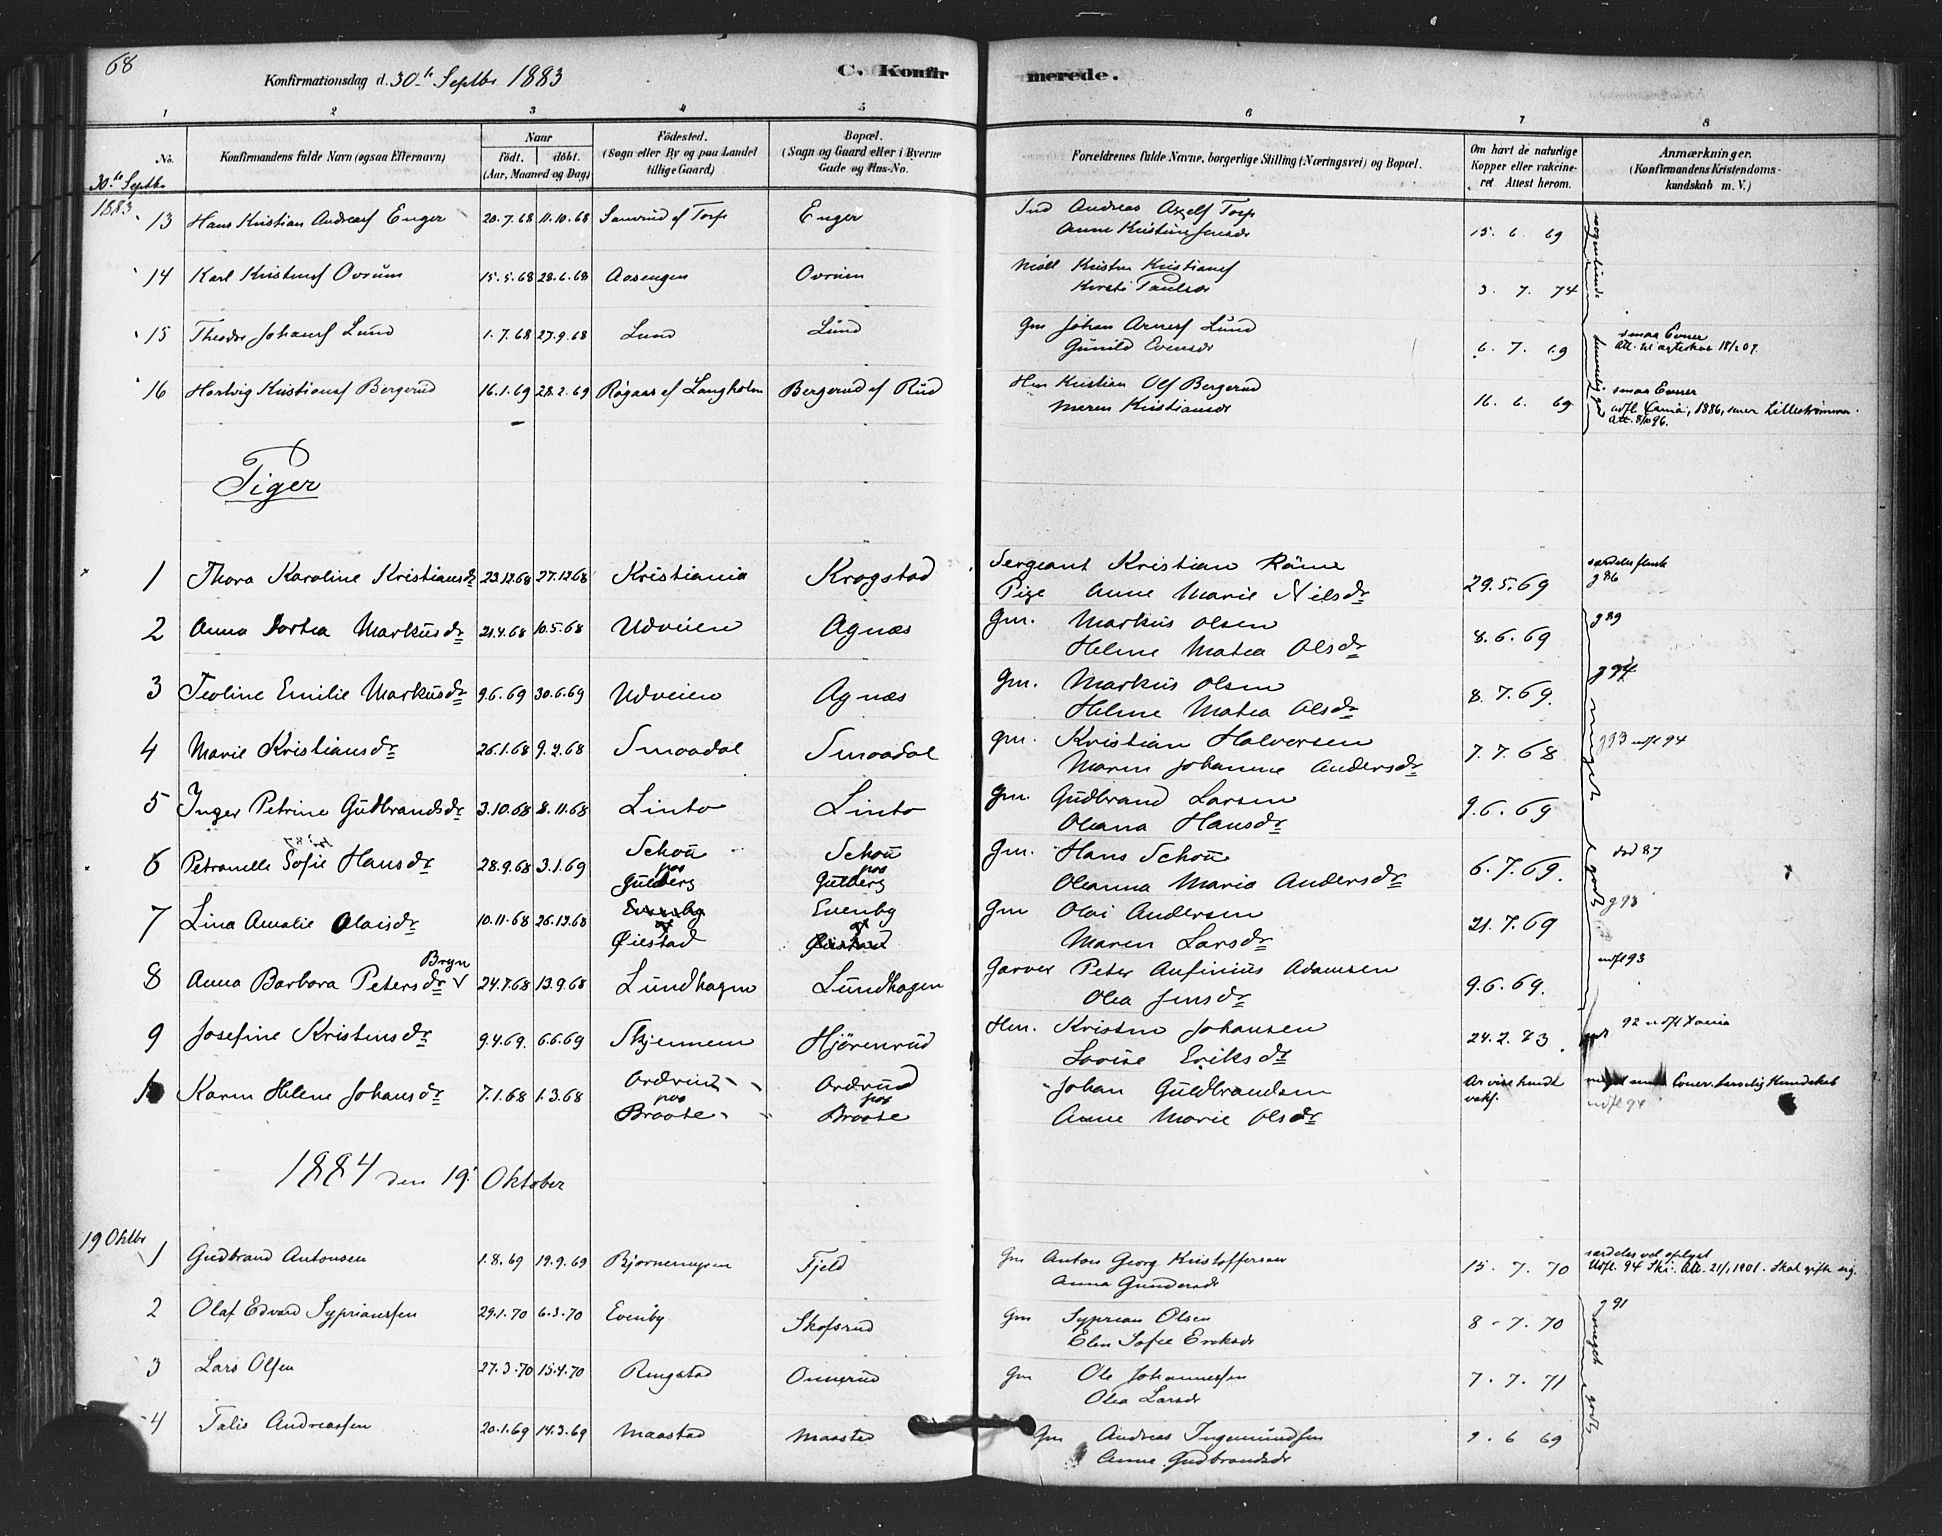 68
Konfirmationsdag d. 30te Septbr 1883
C. Konfirmerede.
1 2 3 4 5 6 7 8
No.
Konfirmandens fulde Navn (ogsaa Efternavn)
Naar
født. | døbt.
(Aar, Maaned og Dag)
Fødested.
(Sogn eller By og paa Landet tillige Gaard)
Bopæl.
(Sogn og Gaard eller i Byerne Gade og Hus-No.
Forældrenes fulde Navne, borgerlige Stilling (Næringsvei) og Bopæl.
Om havt de naturlige Kopper eller vakcineret. Attest herom.
Anmærkninger.
(Konfirmandens Kristendomskundskab m. V.)
30te Septbr
1883
13 Hans Kristian Andreasf Enger 20.7.68 11.10.68 Enger
Ind Andreas Axelf Torp
Anne Kristine Jensdr 15. 6. 69
14 Karl Kristensf Ovrum 15.5.68 28.6.68 Aasengen Ovrum
Kristen Kristiansf
Kirsti Paulsdr 3. 7. 74
15 Theodor Johansf Lund 1.7.68 27.9.68 Lund Lund
Gm Johan Arnesf Lund
Gunild Evensdr 6. 7. 69 smaa Evner
16 Hartvig Kristiansf Bergerud 16.1.69 28.2.69 Røgaas ef Langholm Bergerud ef Rud
Hm Kristian Olf Bergerud
Maren Kristiansdr 16. 6. 69 smaa Evner
udfl. Xania, 1886, senere Lillestrømmen.
Att. 8/10 96.
Piger
1 Thora Karoline Kristiansdr 23.12.68 27.12.68 Kristiania Krogstad
Sergeant Kristian Räme
Pige Anne Marie Nilsdr 29.5.69 særdeles flink
g 86
2 Anna Dortea Markusdr 21.4.68 10.5.68 Udveien Agnæs
Gm. Markus Olsen
Helene Matea Olsdr 8.6.69 g 89
3 Teoline Emilie Markusdr 9.6.69 30.6.69 Udveien Agnæs
Gm. Markus Olsen
Helene Matea Olsdr 8.7.69. g 94
4 Marie Kristiansdr 26.1.68 9.2.68 Smaadal Smaadal
Gm. Kristian Halvorsen
Maren Johanne Andersdr 7.7.68 g 93 udfl 94
5 Inger Petrine Gudbrandsdr 3.10.68 8.11.68 Linto Linto
Gm. Gudbrand Larsen
Oleana Hansdr 9.6.69
meget godt
6 Petronelle Sofie Hansdr 28.9.68 3.1.69 Schou paa Gulberg Schou paa Gulberg
Gm. Hans Schou
Oleanna Maria Andersdr 6.7.69. død 87
7 Lina Amalie Olaisdr 10.11.68 26.12.68 Evenby af Øiestad Evenby af Øiestad
Gm Olai Andersen
Maren Larsdr 21.7.69 g 93
8 Anna Barbara Petersdr Bryn 24.7.68 13.9.68 Lundhagen Lundhagen
Garver Peter Anfinius Adamsen
Olea Jensdr 9.6.69. udfl 93
9 Josefine Kristensdr 9.4.69. 6.6.69 Skjennem Hjørenrud
Hm. Kristen Johansen
Lovise Eriksdr 24.2.83. godt 92 udfl Xania
10 Karen Helene Johansdr 7.1.68 1.3.68 Ordrud paa Braate Ordrud paa Braate
Johan Guldbrandsen
Anne Marie Olsdr
udfl 94
1884 den 19. Oktober
19 Oktbr
1 Gudbrand Antonsen 1.8.69 19.9.69 Bjørnemyren Fjeld
Gm Anton Georg Kristoffersen
Anna Gundersdr 15. 7. 70 særdeles vel oplyst
Udfl. 94 Ski. Att. 21/1 1901. Skal gifte sig.
2 Olaf Edvard Syprianssen 29.1.70 6.3.70 Evenby Skofsrud
Gm Syprian Olsen
Elen Sofie Eriksdr 8. 7. 70 g 91
3 Lars Olsen 27.3.70 15.4.70 Ringstad Onnerud
Gm Ole Johannessen
Olea Larsdr 7. 7. 71
meget godt
4 Talis Andreassen 20.1.69 14.3.69 Maastad Maastad
Gm Andreas Ingemundsen
Anne Gudbrandsdr 9. 6 69